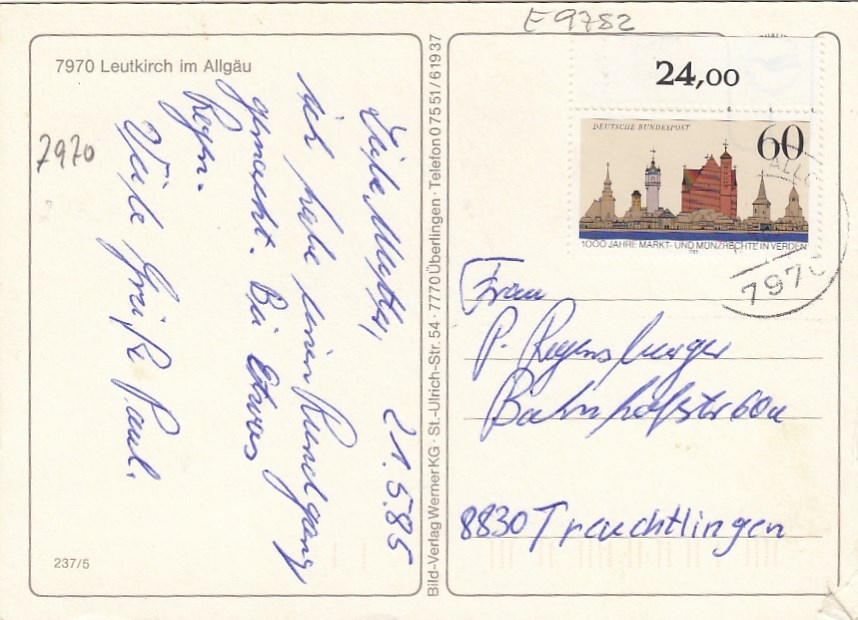 E9782
7970 Leutkirch im Allgäu
7970
Liebe Mutter, 21.5.85
ich habe einen Rundgang
gemacht. Bei Etwas
Regen.
Viele Grüße Paul.
237/5
Bild-Verlag Werner KG · St.-Ulrich-Str. 54 · 7770 Überlingen · Telefon 07551/61937
24,00
DEUTSCHE BUNDESPOST
60
1000 JAHRE MARKT- UND MÜNZRECHTE IN VERDEN
7970
Frau
P. Regensburger
Bahnhofstr 60a
8830 Treuchtlingen